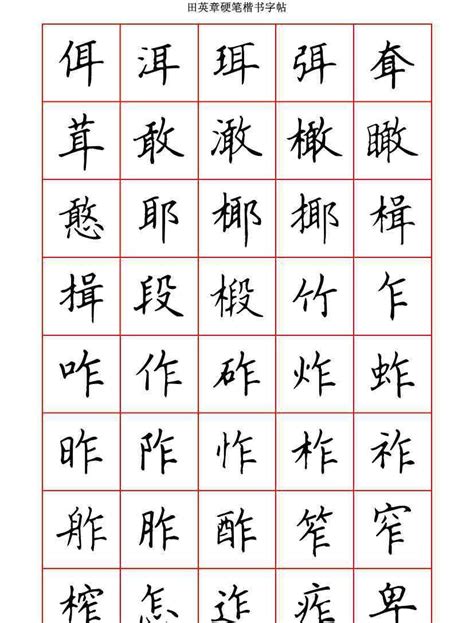 田英章硬笔楷书字帖
佴洱珥弭耷
茸敢澉橄瞰
憨耶椰揶楫
揖段椴竹乍
咋作砟炸蚱
昨阼怍柞祚
舴胙酢笮窄
榨怎迮痄卑